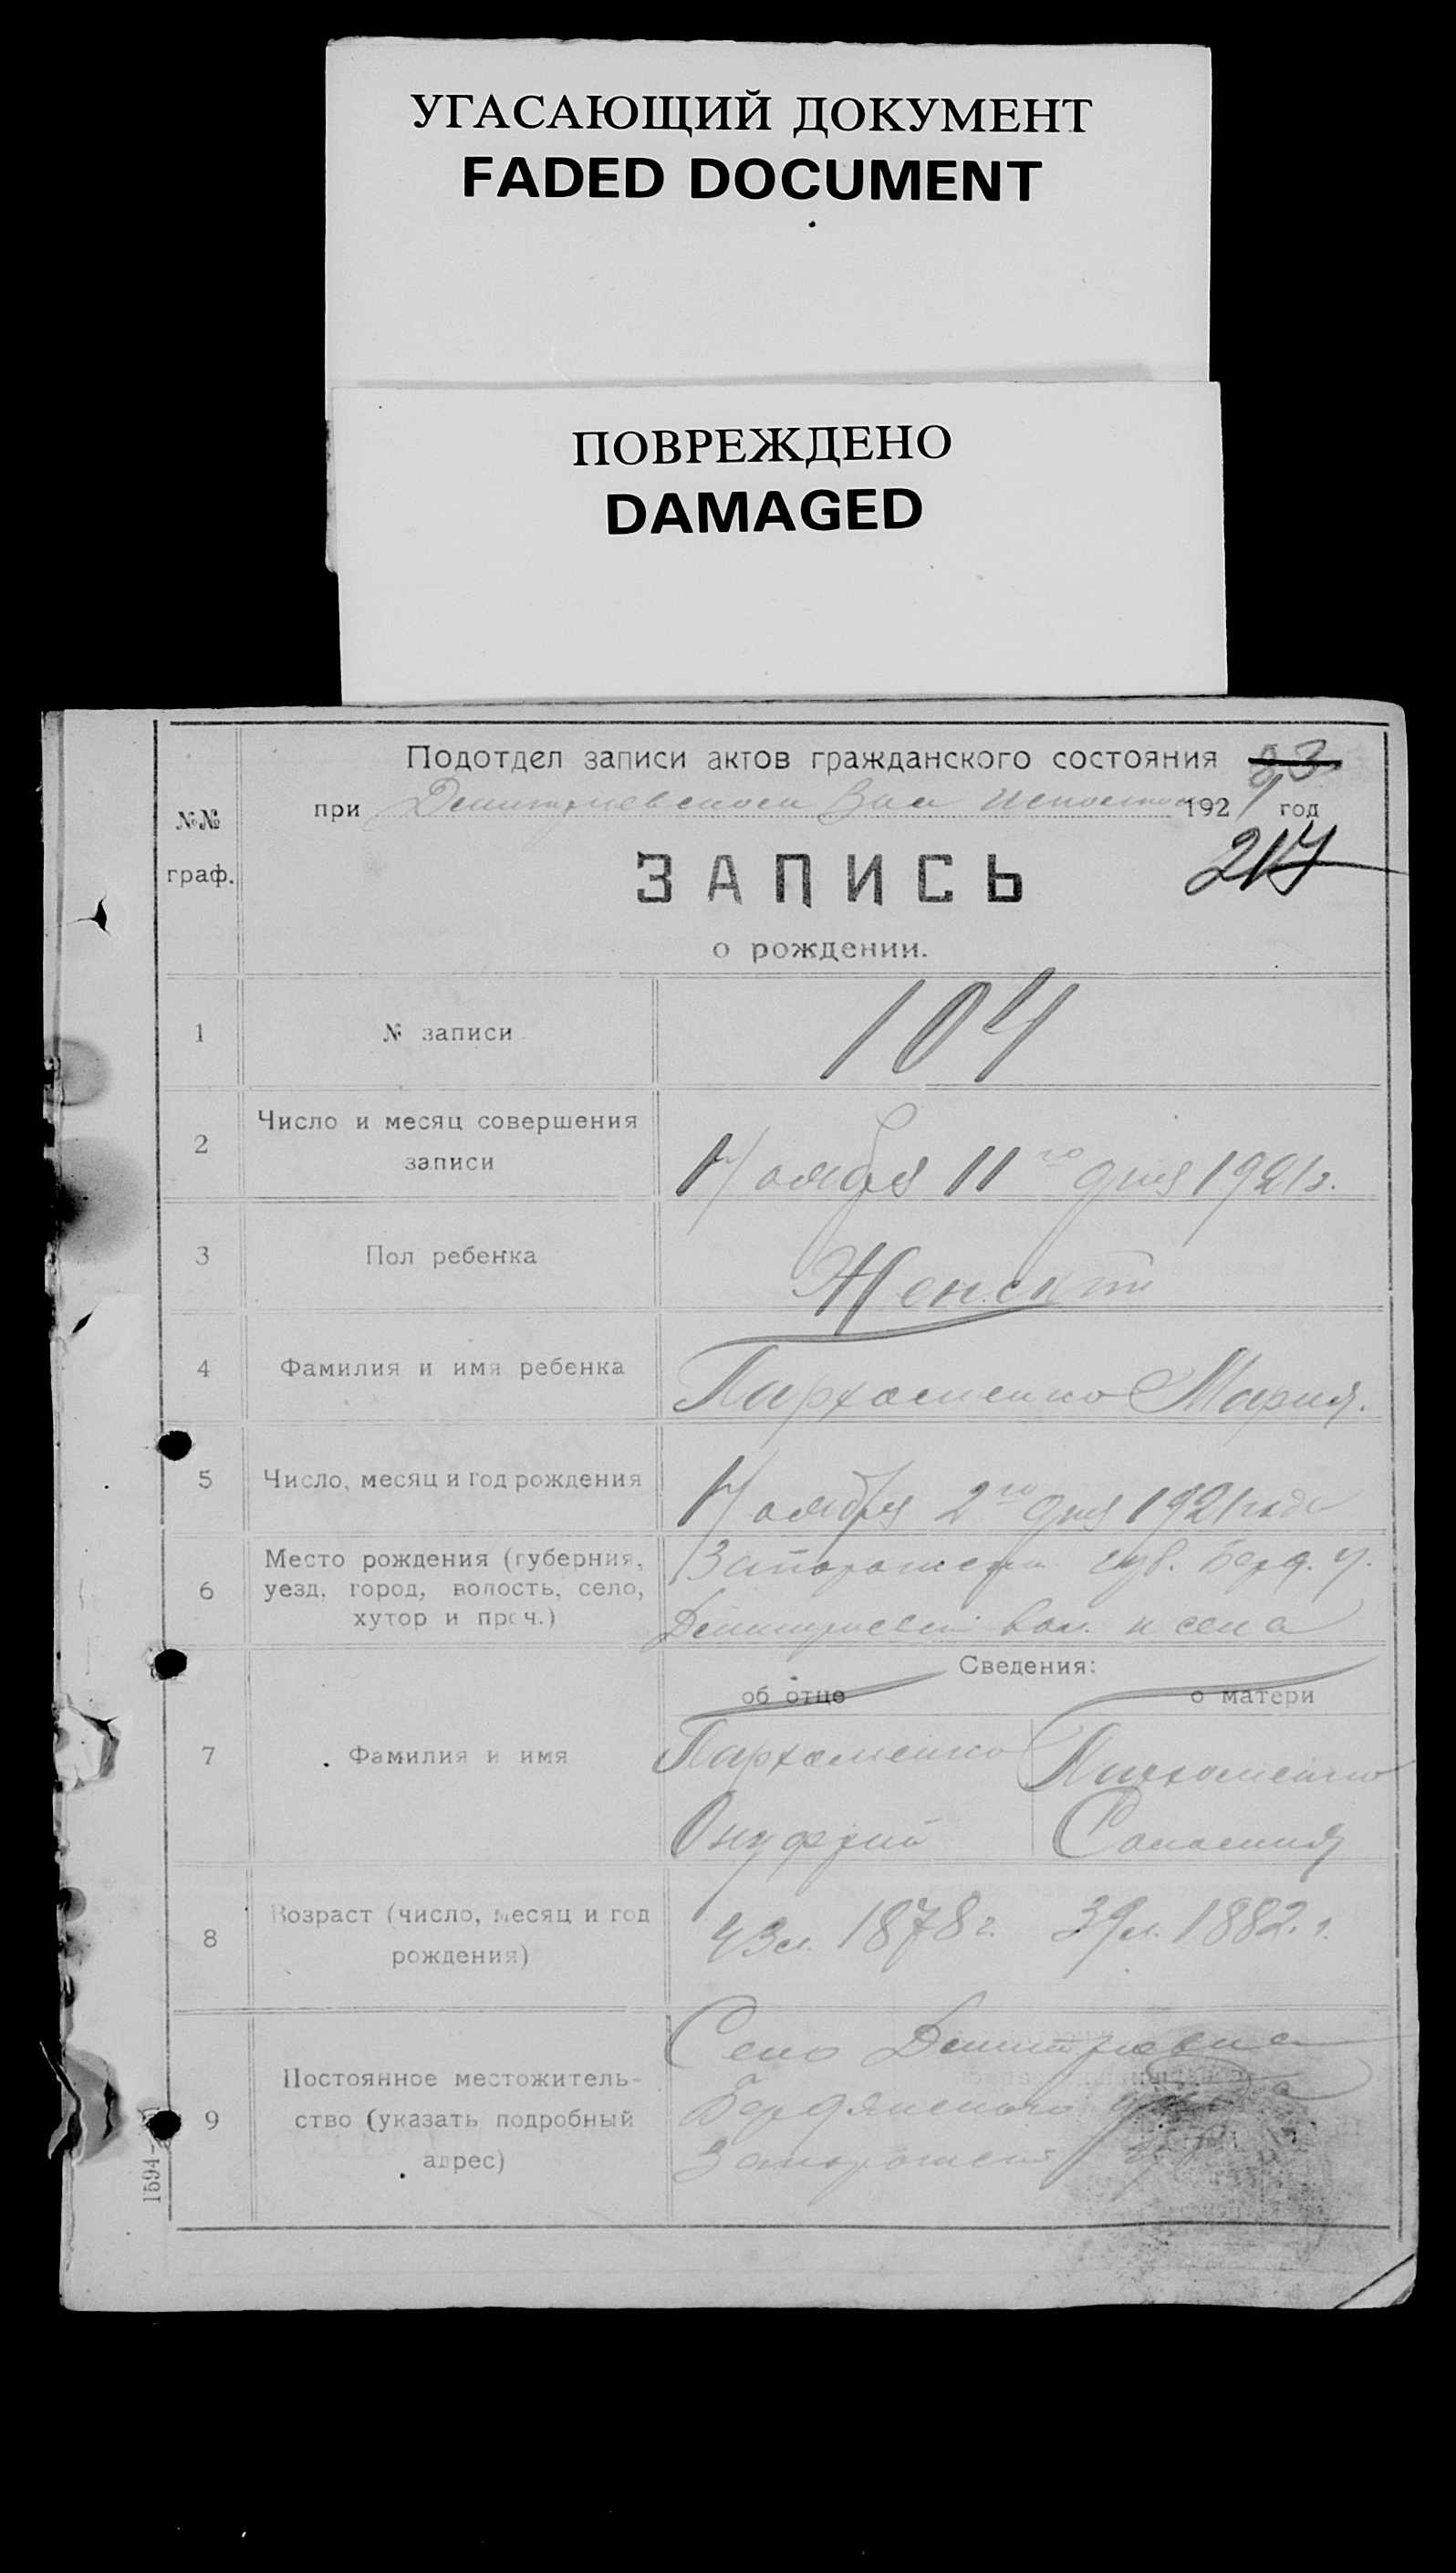 УГАСАЮЩИЙ ДОКУМЕНТ
FADED DOCUMENT
ПОВРЕЖДЕНО
DAMAGED
Подотдел записи актов гражданского состояния
№№ граф.
при Дмитриевском Вол 1921 год
217
ЗАПИСЬ
о рождении.
1 № записи 104
2 Число и месяц совершения
записи
Ноября 11го дня 1921г.
3 Пол ребенка Женский
4 Фамилия и имя ребенка Пархоменко Мария.
5 Число, месяц и год рождения Ноября 2го дня 1921 года
6 Место рождения (губерния,
уезд, город, волость, село,
хутор и проч.)
Запорожской губ. Берд. у.
Дмитриевской вол. и села
Сведения:
об отце о матери
7 Фамилия и имя
Пархоменко Пархоменко
Онуфрий
8 Возраст (число, месяц и год
рождения)
43 л. 1878 г. 39 л. 1882 г.
9 Постоянное местожитель-
ство (указать подробный
адрес)
Село Дмитриевка
Бердянского уезда
Запорожской губ
1594